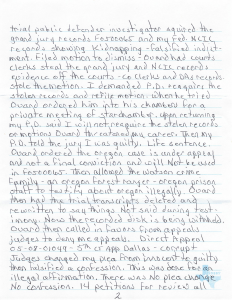 trial public defender investigator aquired the
grand jury records Fors2005 and my Fed NCIC
records showing kidnapping-falsified indict-
ment. Filed motion to dismiss - Ovard had courts
clerks steal the grand jury and NCIC records
evidence off the courts - co clerks and DAs records
stole the motion. I demanded P.D. requires the
stolen records and refile motion. When he tried
Ovard ordered him into his chambers for a
private meeting of star chamber. Upon returning
my P.D. said I will not require the stolen records
or motion. Ovard threatened my career. Then my
P.D. told the jury I was guilty. Life sentence.
Ovard ordered the oregon case is under appeal
and not a final conviction and will Not be used
in Fors2005. Then allowed the Watson crime
Family - an oregon forest ranger - oregon prison
staff to testify about oregon illegally. Ovard
then had the trial transcripts deleted and
rewritten to say things Not said during test-
imony. Now the recorded disk is being withheld.
Ovard then called in favors from appeals
judges to deny me appeal. Direct Appeal
05-08-01049- 5th ct App Dallas - corrupt
Judges changed my plea from innocent to guilty
then falsified a confession. This was also to
illegal affirmation. There was No plea change
No confession. 14 petitions for review all
2